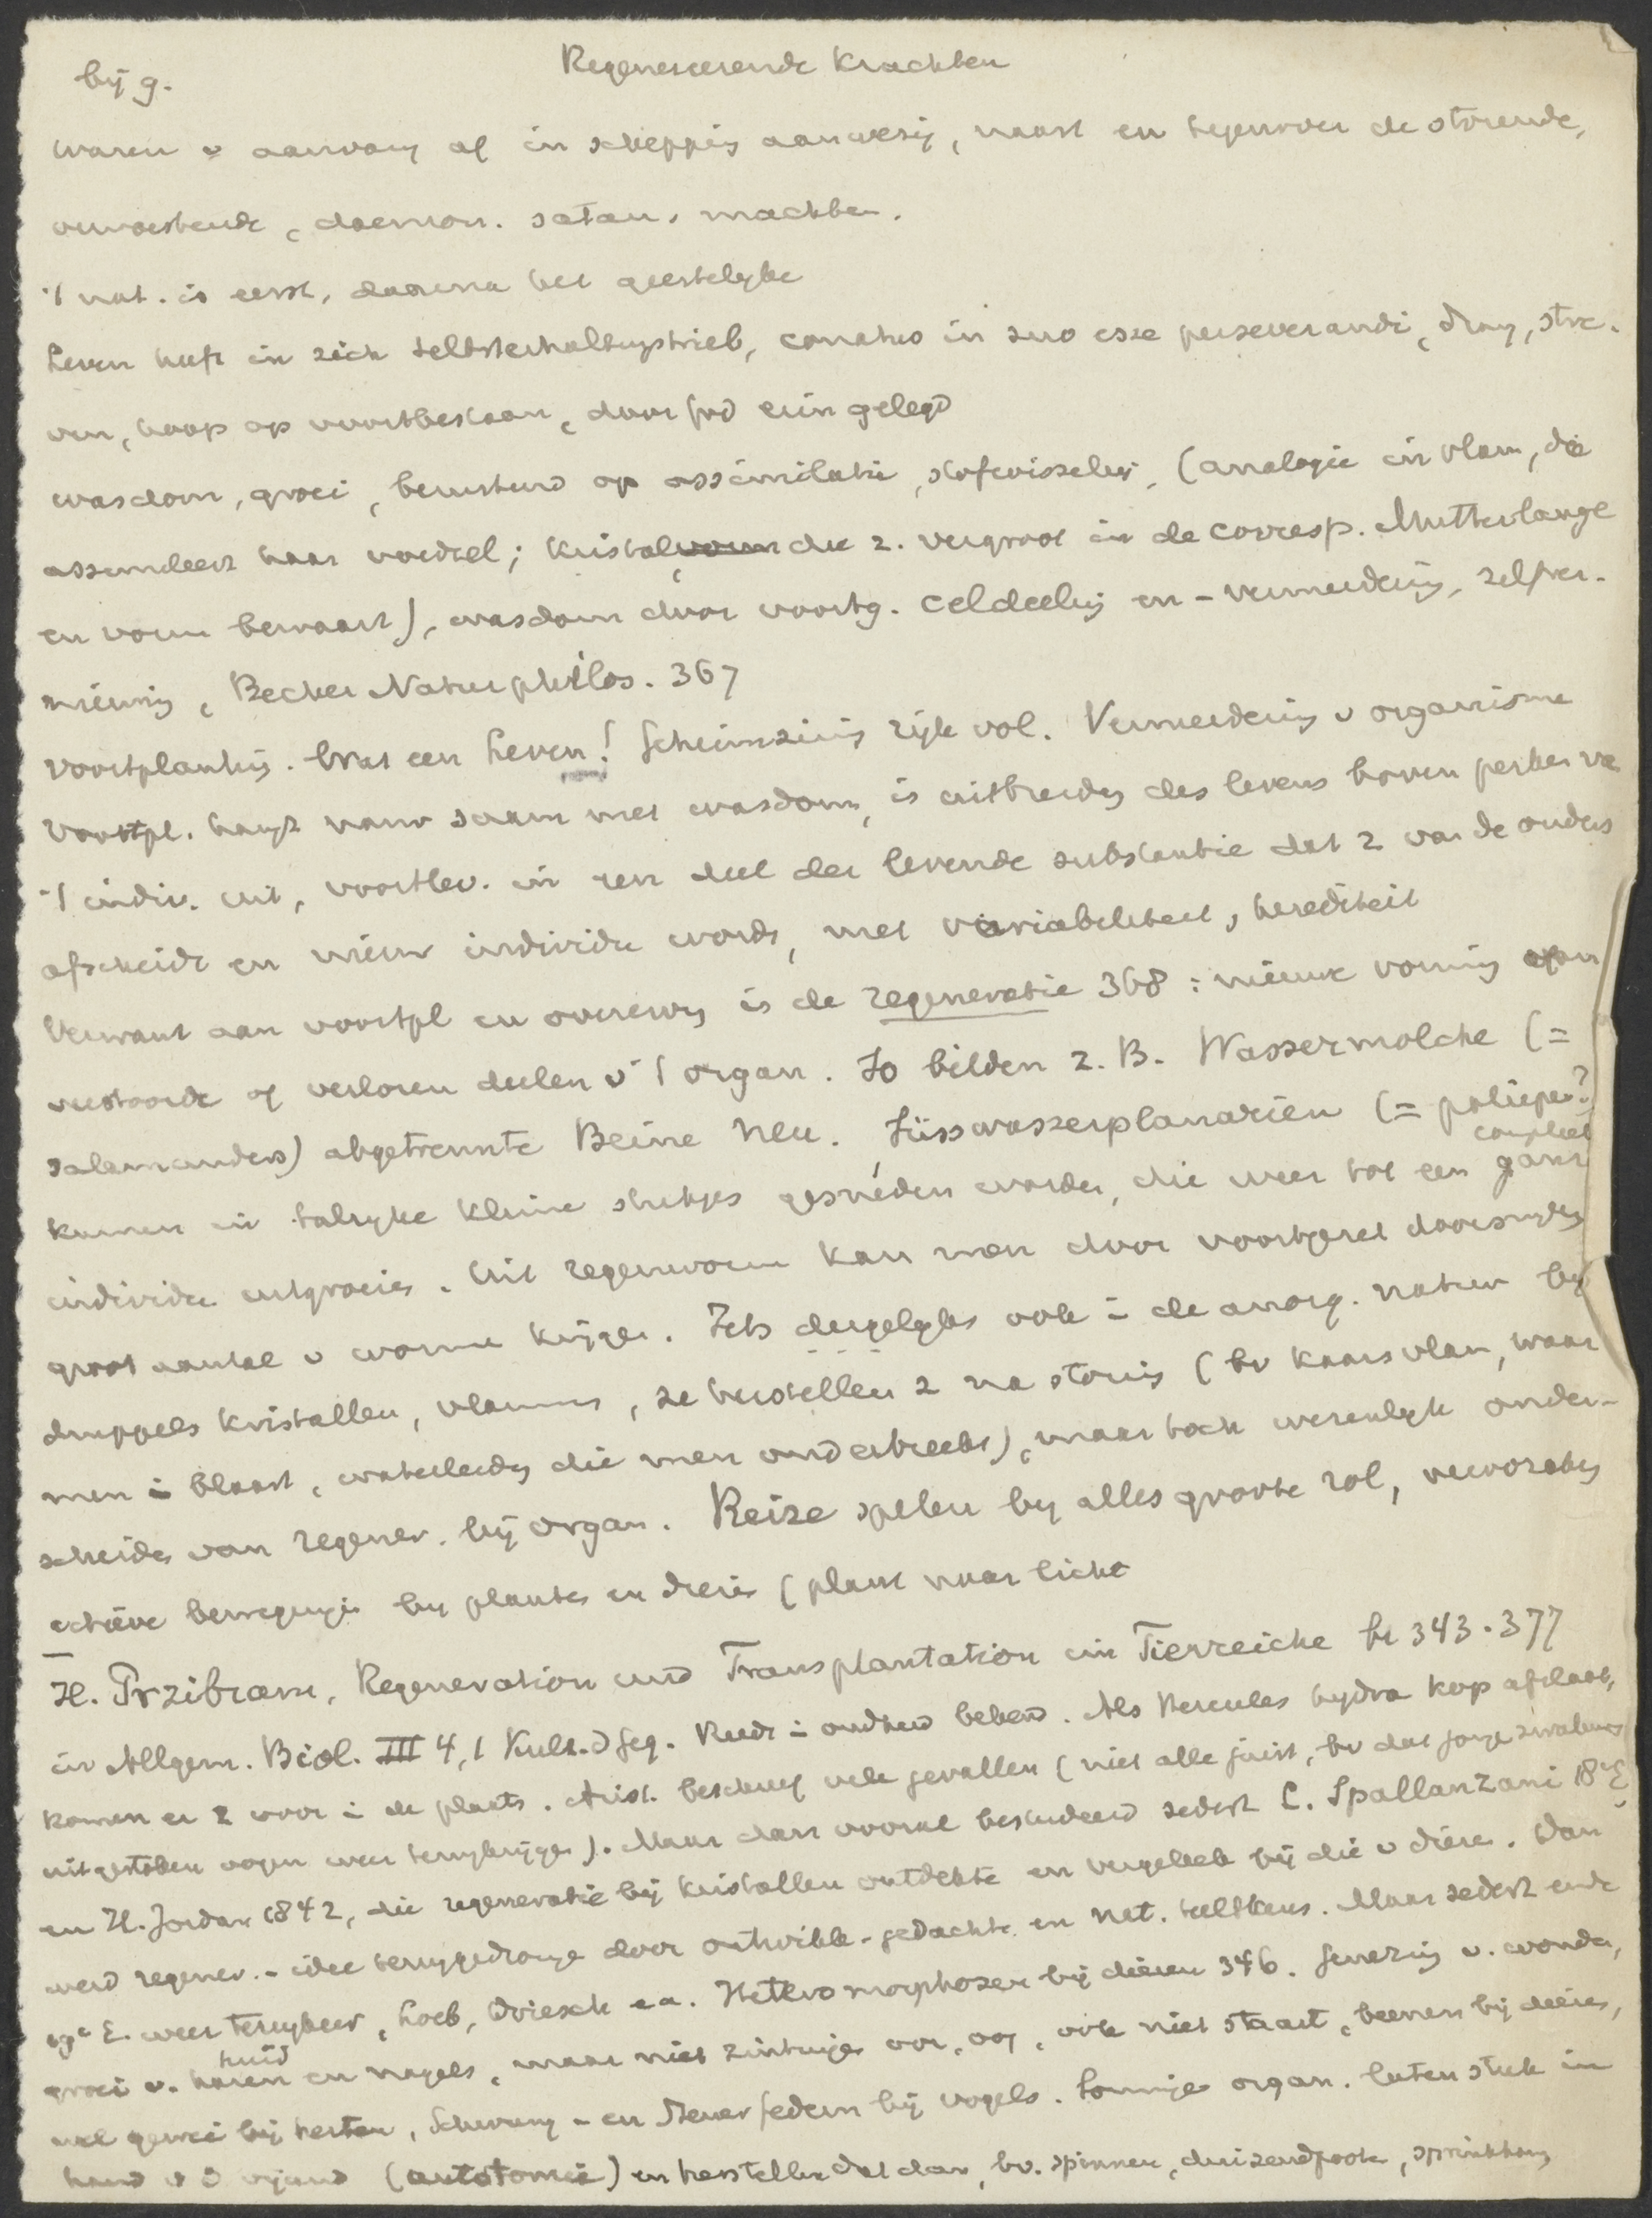 bij 9.
Regenereerende krachten
waren v aanvang af in schepping aanwezig, naast en tegenover de storende,
verwoestende, daemon. satan. machten.
't nat. is eerst, daarna het geestelijke
Leven heeft in zich Selbsterhaltungstrieb, conatus in suo esse perseverandi, drang, stre-
ven, hoop op voortbestaan, door God erin gelegd
wasdom, groei, berustend op assimilatie, stofwisseling, (analogie in vlam, die
assimileert haar voedsel; kristal die z. vergroot in de corresp. Mutterlauge
en vorm bewaart), wasdom door voortg. celdeeling en -vermeerdering, zelfver-
nieuwing, Becher Naturphilos. 367
Voortplanting. Wat een Leven! Scheinz rijk vol. Vermeerdering v organisme
Voortpl. hangt nauw saam met wasdom, is uitbreiding des levens boven perken van
't indiv. uit, voortlev. in een deel der levende substantie dat z van de ouders
afscheidt en nieuw individu wordt, met variabiliteit, herediteit
Verwant aan voortpl en overerving is de regeneratie 368: nieuwe vorming van
verstoorde of verloren deelen v 't organ. So bilden z. B. Wassermolche (=
salamanders) abgetrennte Beine neu. Süsswasserplanarien (= poliepen?)
kunnen in talrijke kleine stukjes gesneden worden, die weer tot een gans compleet
individu uitgroeien. Uit regenworm kan men door voortgezet doorsnijden
groot aantal v wormen krijgen. Iets dergelijks ook in de anorg. natuur bij
druppels kristallen, vlammen, ze herstellen z na storing (bv kaarsvlam, waar
men in blaast, waterleiding die men onderbreekt), maar toch wezenlijk onder-
scheiden van regener. bij organ. Reize spelen bij alles groote rol, veroorzaken
actieve bewegingen bij planten en dieren (plant naar licht
H. Przibram, Regeneration und Transplantation im Tierreiche bl 343-377
in Allgem. Biol. III 4,1 Kult. d Geg. Reeds in oudheid bekend. Als Hercules hydra kop afslaat,
komen er 2 voor in de plaats. Arist. beschreef vele gevallen (niet alle juist, bv dat jonge zwaluwen
uitgestoken oogen weer terugkrijgen). Maar dan vooral bestudeerd sedert L. Spallanzani 18e E,
en H. Jordan 1842, die regeneratie bij kristallen ontdekte en vergeleek bij die v dieren. Dan
werd regener.-idee teruggedrongen door ontwikk.-gedachte en nat. teeltkeus. Maar sedert einde
19e E. weer terugkeer, Loeb, Driesch e.a. Heteromorphosen bij dieren 346. Genezing v. wonden,
groei v. haren huid en nagels, maar niet zintuigen oor, oog, ook niet staart, beenen bij dieren,
wel gewei bij herten, Schwung- en Steuerfedern bij vogels. Sommige organ. laten stuk in
hand v d vijand (autotomie) en herstellen dat dan, bv. spinnen, duizendpooten, sprinkhanen